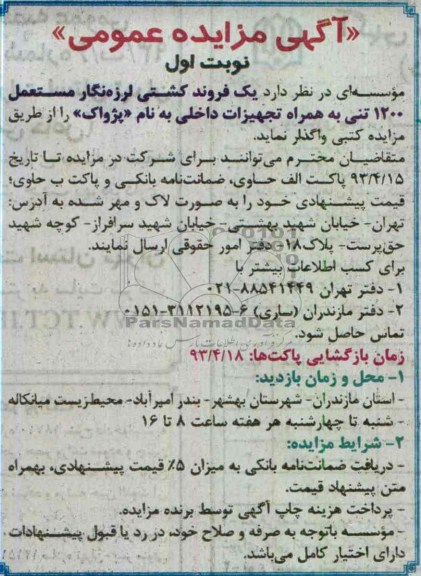 «آگهی مزایده عمومی»
نوبت اول
مؤسسه‌ای در نظر دارد یک فروند کشتی لرزه‌نگار مستعمل
۱۲۰۰ تنی به همراه تجهیزات داخلی به نام «پژواک» را از طریق
مزایده کتبی واگذار نماید.
متقاضیان محترم می‌توانند برای شرکت در مزایده تا تاریخ
۹۳/۴/۱۵ پاکت الف حاوی، ضمانت‌نامه بانکی و پاکت ب حاوی؛
قیمت پیشنهادی خود را به صورت لاک و مهر شده به آدرس:
تهران- خیابان شهید بهشتی- خیابان شهید سرافراز- کوچه شهید
حق‌پرست- پلاک۱۸- دفتر امور حقوقی ارسال نمایند.
برای کسب اطلاعات بیشتر با
۱- دفتر تهران ۸۸۵۴۱۴۴۹-۰۲۱
۲- دفتر مازندران (ساری) ۶-۳۱۱۲۱۹۵-۰۱۵۱
ParsNamadData
تماس حاصل شود.
زمان بازگشایی پاکت‌ها: ۹۳/۴/۱۸
۱- محل و زمان بازدید:
- استان مازندران- شهرستان بهشهر- بندر امیرآباد- محیط‌زیست میانکاله
- شنبه تا چهارشنبه هر هفته ساعت ۸ تا ۱۶
۲- شرایط مزایده:
- دریافت ضمانت‌نامه بانکی به میزان ۵٪ قیمت پیشنهادی، بهمراه
متن پیشنهاد قیمت.
- پرداخت هزینه چاپ آگهی توسط برنده مزایده.
-مؤسسه باتوجه به صرفه و صلاح خود، در رد یا قبول پیشنهادات
دارای اختیار کامل می‌باشد.